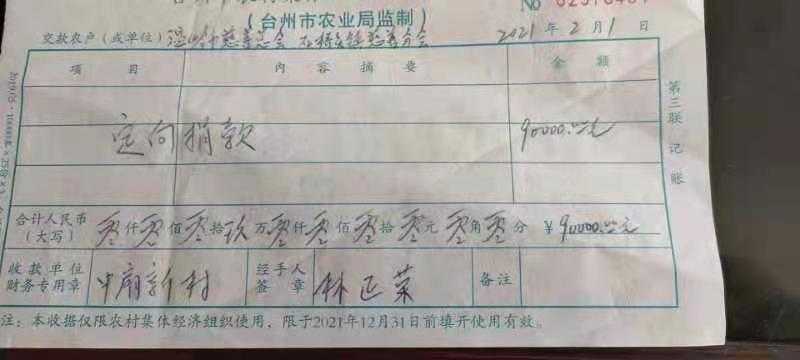 (台州市农业局监制)
No
交款农户(或单位) 温岭市慈善总会 石桥头镇慈善分会 2021年2月1日
项目 内容摘要 金额
定向捐款 90000.00元
第三联 记账
合计人民币(大写) 零仟零佰零拾玖万零仟零佰零拾零元零角零分 ¥90000.00元
收款单位财务专用章 中扇新村 经手人签章 林正荣 备注
注:本收据仅限农村集体经济组织使用,限于2021年12月31日前填开使用有效。